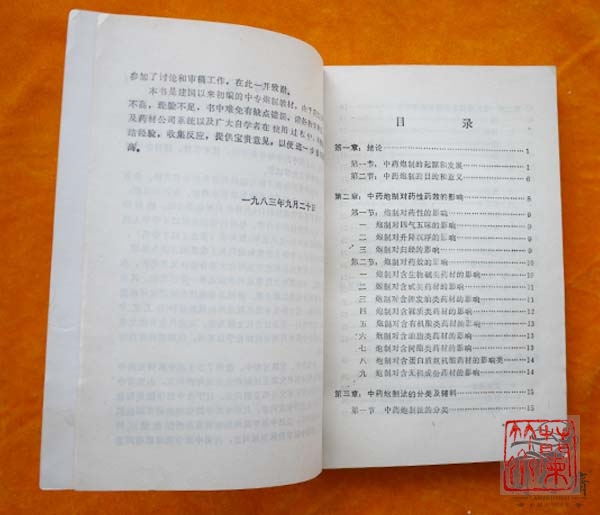 参加了讨论和审稿工作，在此一并致谢。
本书是建国以来初编的中专炮制教材，由于
不高，经验不足，书中难免有缺点错误，
及药材公司系统以及广大自学者在使用过程中，
结经验，收集反应，提供宝贵意见，以便进一步
高。
一九八三年九月二十日
目 录
第一章：绪论……1
第一节：中药炮制的起源和发展……1
第二节：中药炮制的目的和意义……6
第二章：中药炮制对药性药效的影响……8
第一节：炮制对药性的影响……9
一 炮制对四气五味的影响……9
二 炮制对升降沉浮的影响……9
三 炮制对归经的影响……9
第二节：炮制对药效的影响……10
一 炮制对含生物碱类药材的影响……10
二 炮制对含甙类药材的影响……11
三 炮制对含挥发油类药材的影响……11
四 炮制对含鞣质类药材的影响……12
五 炮制对含有机酸类药材的影响……13
六 炮制对含油脂类药材的影响……13
七 炮制对含树脂类药材的影响……13
八 炮制对含蛋白质氨机酸药材的影响类……14
九 炮制对含无机成份药材的影响……14
第三章：中药炮制法的分类及辅料……15
第一节 中药炮制法的分类……15